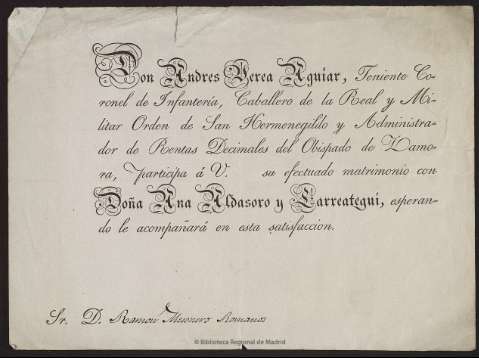 Don Andres Perea Aguiar, Teniente Co-
ronel de Infantería, Caballero de la Real y Mi-
litar Orden de San Hermenegildo y Administra-
dor de Rentas Decimales del Obispado de Zamo-
ra, participa á V. su efectuado matrimonio con
Doña Ana Aldasoro y Larreategui, esperan-
do le acompañará en esta satisfaccion.
Sr. D. Ramon Mesonero Romanos
© Biblioteca Regional de Madrid